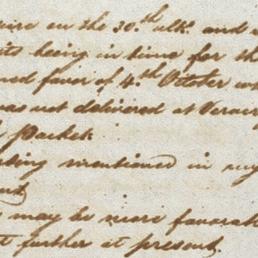 on the 30.th ult.o and
being in time for th
favor of 4.th October w
was not delivered at Verac
Packet.
mentioned in my
may be more favorab
further at present.